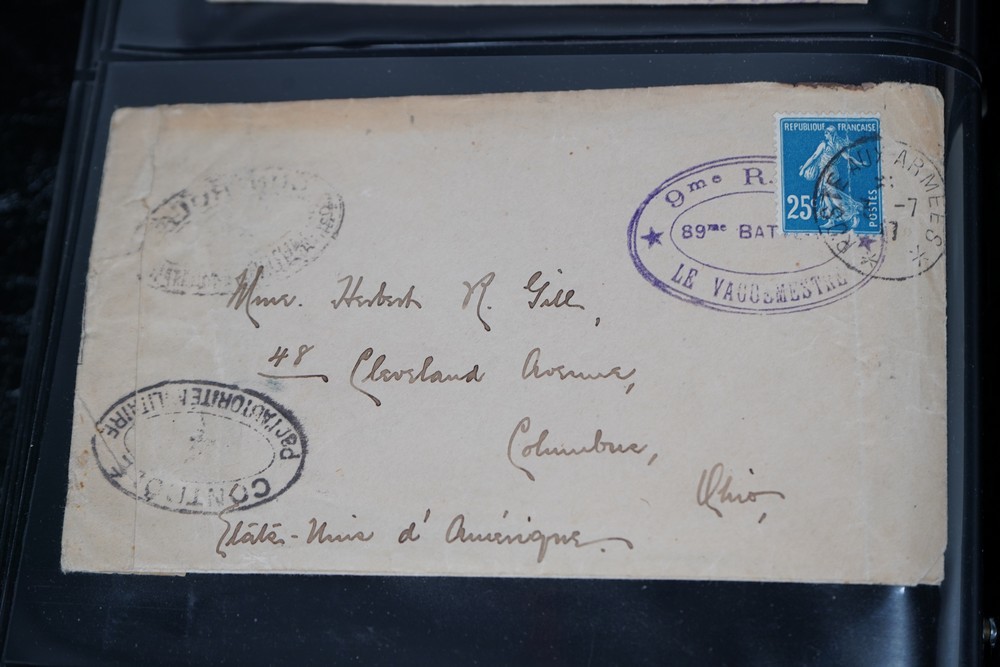 REPUBLIQUE FRANÇAISE
25c
POSTES
POSTE AUX ARMEES
-7
17
9me R.
89me BAT
LE VAGUEMESTRE
Mme. Herbert R. Gill,
48 Cleveland Avenue,
Columbus,
Ohio,
États-Unis d'Amérique.
CONTRÔLÉ
par l'AUTORITÉ MILITAIRE